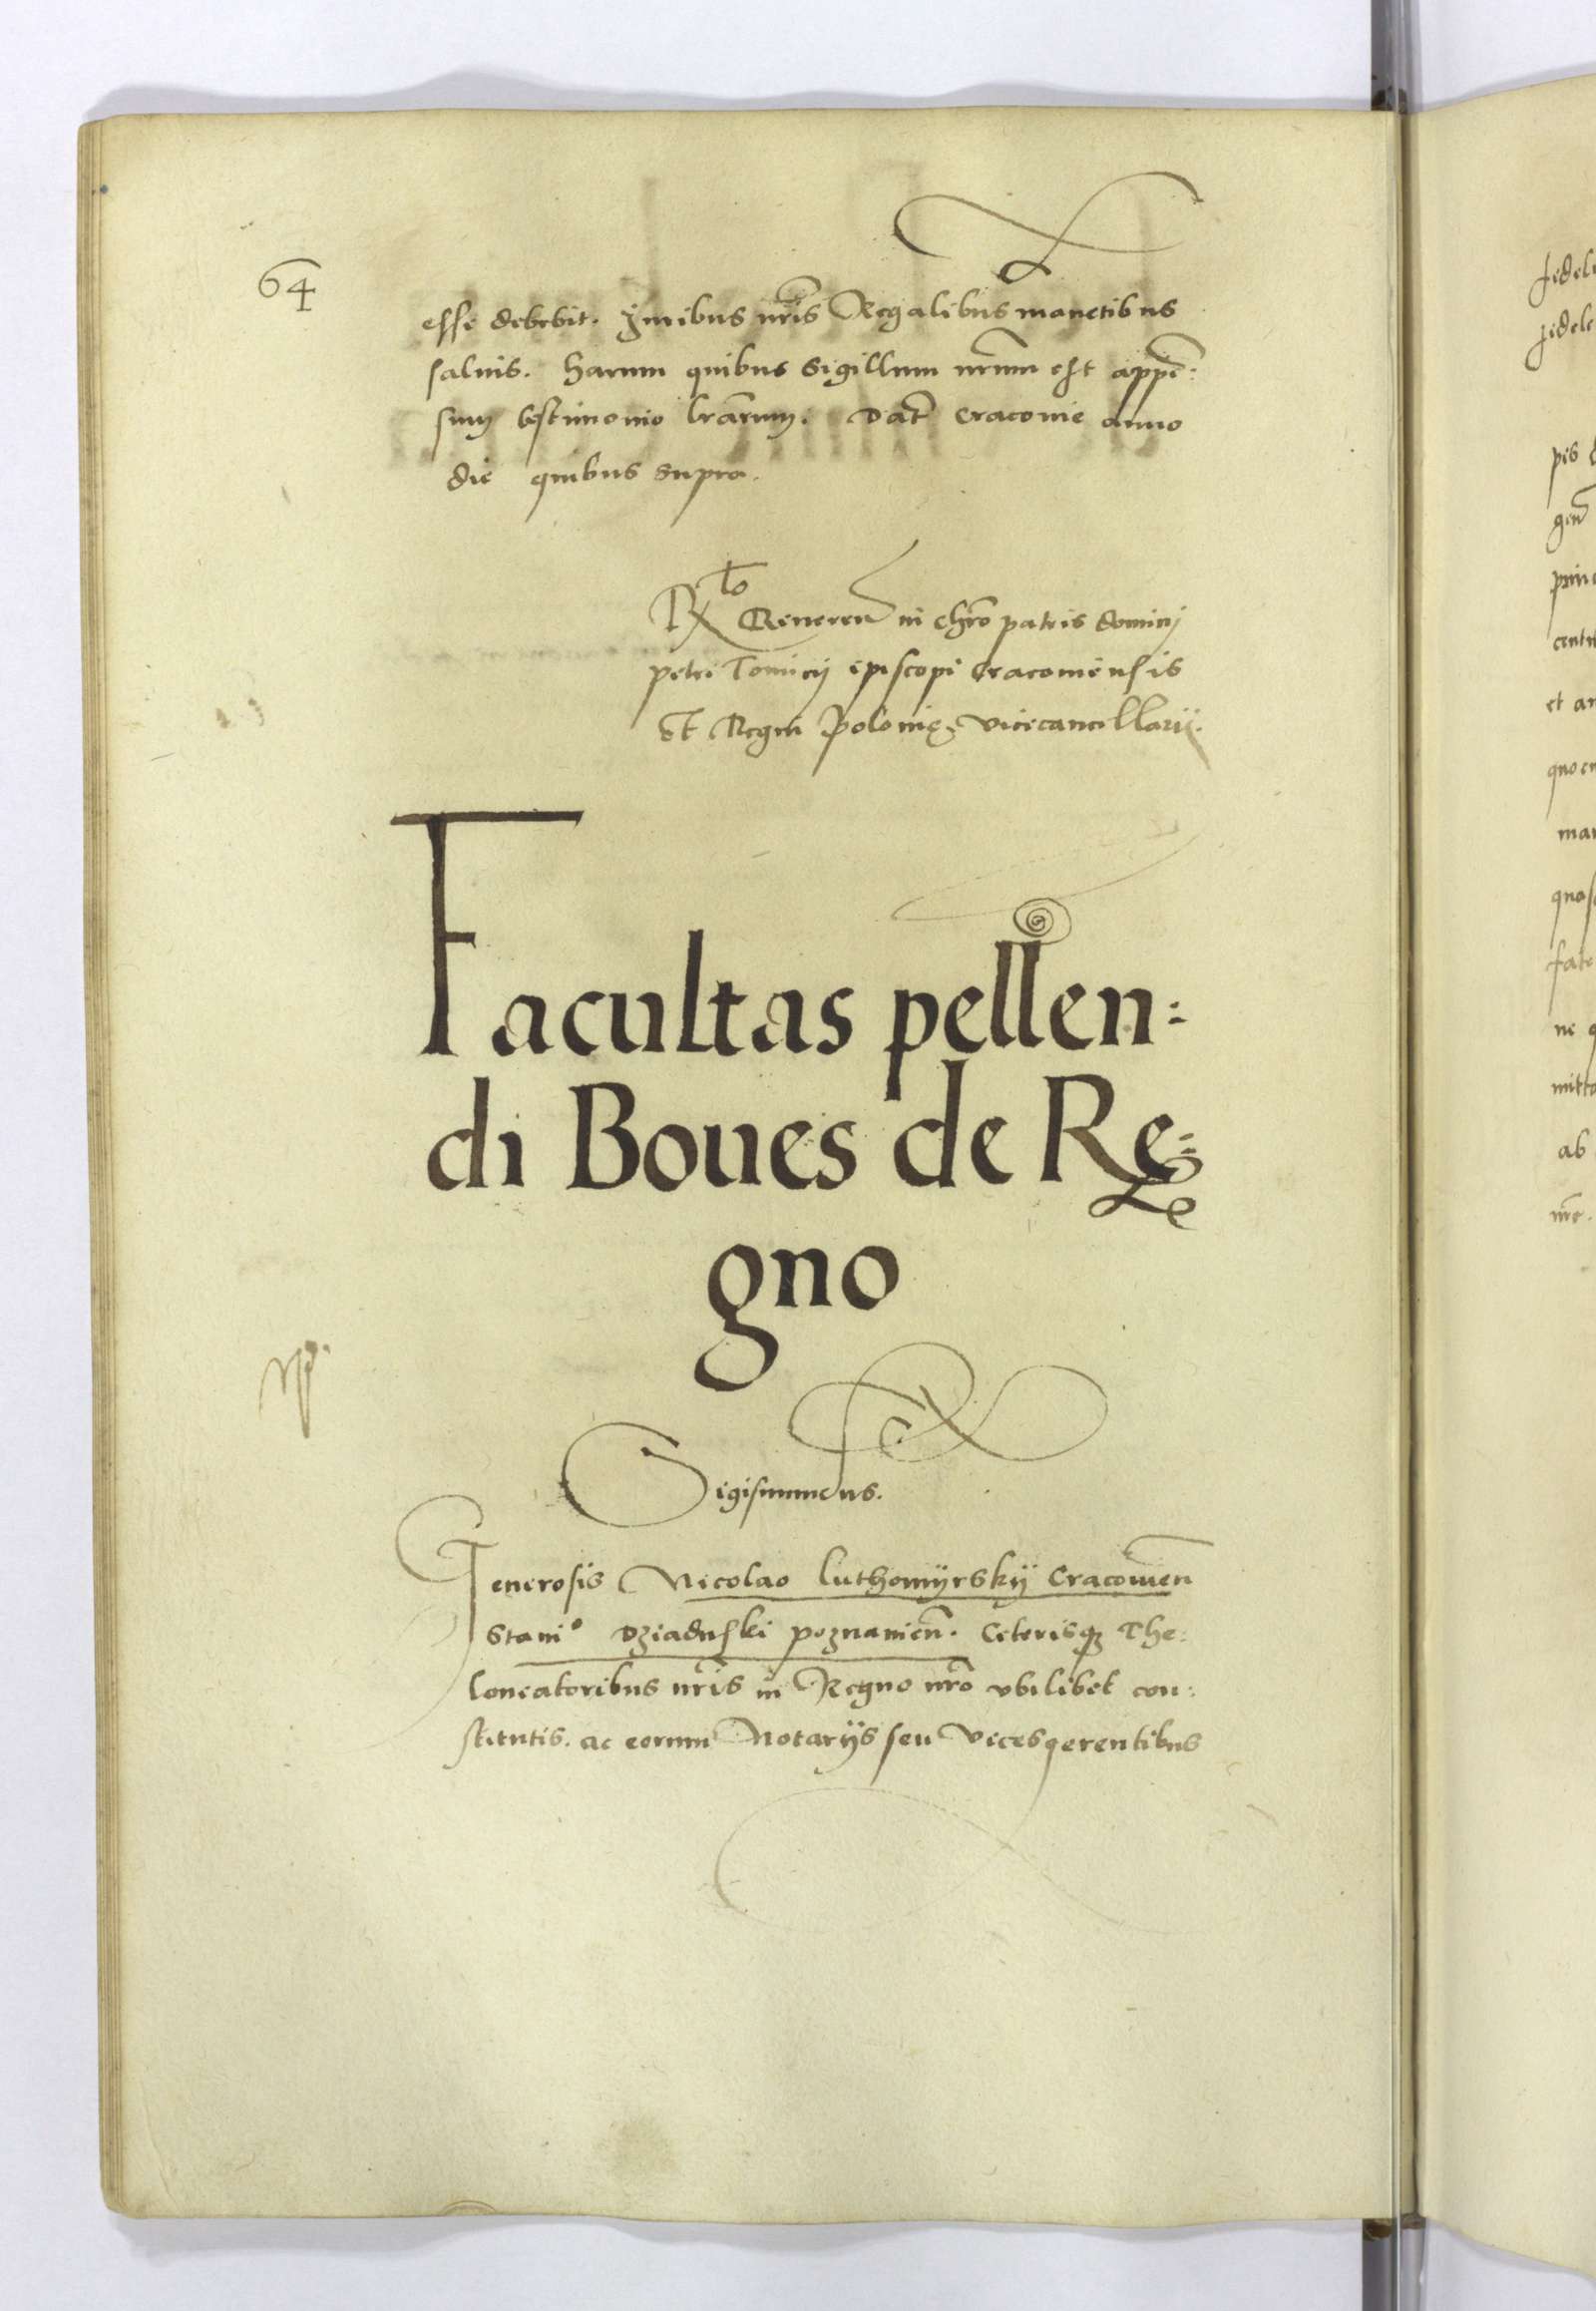 64
esse debebit. Juribus nr̃is Regalibus manẽtibus
saluis. Harum quibus Sigillum nrũm est appẽ:
sum testimonio lrãrum. Dat̃ Cracouie anno
die quibus supra.
Rᵗᵒ Reueren̄ in chrõ patris dominj
petri Tomicij episcopi Cracouiensis
Et Regni Polonię vicecancellarij.
Facultas pellen=
di Boues de Re=
gno
Sigismundus.
Generosis Nicolao Luthomÿrskÿ Cracouien̄
Stani° Dziaduski poznanien̄. Ceterisqꝫ The:
loneatoribus nr̃is in Regno nrõ vbilibet con:
stitutis. ac eorum Notarijs seu Vicesgerentibus
fidel
fidele
pis
gen̄
princ
et ar
ne q
mitta
ab